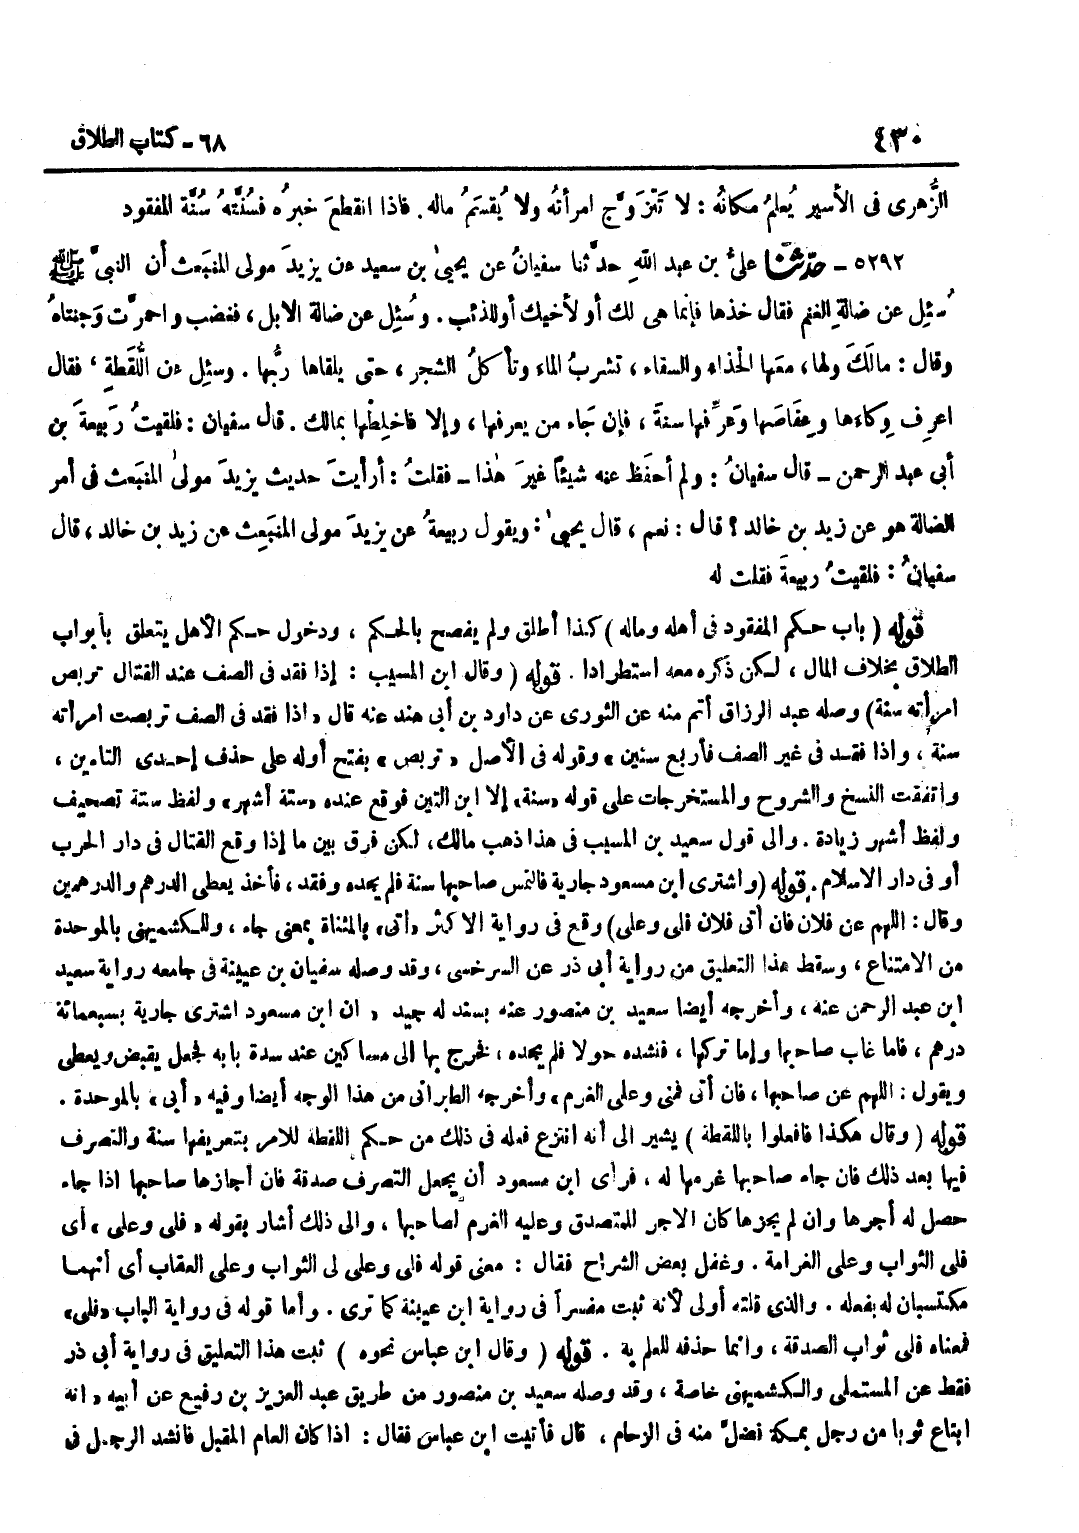 ٤٣٠
٦٨ - كتاب الطلاق
الزُّهرى فى الأسير يُعلمُ مكانهُ : لا تَتزوَّج امرأتهُ ولا يُقسَمُ ماله . فاذا انقطعَ خبرُه فسُنَّتهُ سُنَّة المفقود
٥٢٩٢ - حدّثنا علىُّ بن عبد اللهِ حدَّثنا سفيانُ عن يحيىٰ بن سعيد عن يزيدَ مولى المنبَعث أن النبىَّ ﷺ
سُئِل عن ضالةِ الغنم فقال خذها فإنما هى لك أو لأخيك أو للذئب . وسُئِل عن ضالة الابل ، فغضب واحمرَّت وَجنتاهُ
وقال : مالَكَ ولها ، معَها الحذاء والسقاء ، تشربُ الماء وتأكلُ الشجر ، حتى يلقاها ربُّها . وسئِل عن اللُّقَطةِ ، فقال
اعرِف وِكاءها وعِفاصَها وعَرِّفها سنةَ ، فإن جَاء من يعرفها ، وإلا فاخلِطْها بمالك . قال سفيان : فلقيتُ ربيعةَ بن
أبي عبد الرحمن - قال سفيانُ : ولم أحفَظ عنه شيئاً غيرَ هٰذا - فقلتُ : أرأيتَ حديث يزيدَ مولىٰ المنبَعث فى أمر
الضالة هو عن زيد بن خالد ؟ قال : نعم ، قال يحيىٰ : ويقول ربيعةُ عن يزيدَ مولى المنبَعِث عن زيد بن خالد ، قال
سفيانُ : فلقيتُ ربيعةَ فقلت له
قوله ( باب حكم المفقود فى أهله وماله ) كذا أطلق ولم يفصح بالحكم ، ودخول حكم الأهل يتعلق بأبواب
الطلاق بخلاف المال ، لكن ذكره معه استطرادا . قوله ( وقال ابن المسيب : إذا فقد فى الصف عند القتال تربص
امرأته سنة ) وصله عبد الرزاق أتم منه عن الثورى عن داود بن أبى هند عنه قال « اذا فقد فى الصف تربصت امرأته
سنة ، واذا فقد فى غير الصف فأربع سنين » وقوله فى الأصل « تربص » بفتح أوله على حذف إحدى التاءين ،
واتفقت النسخ والشروح والمستخرجات على قوله « سنة » إلا ابن التين فوقع عنده « ستة أشهر » ولفظ ستة تصحيف
ولفظ أشهر زيادة . والى قول سعيد بن المسيب فى هذا ذهب مالك ، لكن فرق بين ما إذا وقع القتال فى دار الحرب
أو فى دار الاسلام . قوله ( واشترى ابن مسعود جارية فالتمس صاحبها سنة فلم يجده وفقد ، فأخذ يعطى الدرهم والدرهمين
وقال : اللهم عن فلان فان أتى فلان فلى وعلى ) وقع فى رواية الاكثر « أتى » بالمثناة بمعنى جاء ، وللكشميهنى بالموحدة
من الامتناع ، وسقط هذا التعليق من رواية أبى ذر عن السرخسى ، وقد وصله سفيان بن عيينة فى جامعه رواية سعيد
ابن عبد الرحمن عنه ، وأخرجه أيضا سعيد بن منصور عنه بسند له جيد « ان ابن مسعود اشترى جارية بسبعمائة
درهم ، فاما غاب صاحبها وإما تركها ، فنشده حولا فلم يجده ، فخرج بها الى مساكين عند سدة بابه فجعل يقبض ويعطى
ويقول : اللهم عن صاحبها ، فان أتى فمنى وعلى الغرم » وأخرجه الطبرانى من هذا الوجه أيضا وفيه « أبى » بالموحدة .
قوله ( وقال هكذا فافعلوا باللقطة ) يشير الى أنه انتزع فعله فى ذلك من حكم اللقطة للامر بتعريفها سنة والتصرف
فيها بعد ذلك فان جاء صاحبها غرمها له ، فرأى ابن مسعود أن يجعل التصرف صدقة فان أجازها صاحبها اذا جاء
حصل له أجرها وان لم يجزها كان الاجر للمتصدق وعليه الغرم لصاحبها ، والى ذلك أشار بقوله « فلى وعلى » أى
فلى الثواب وعلى الغرامة . وغفل بعض الشراح فقال : معنى قوله فلى وعلى لى الثواب وعلى العقاب أى أنهما
مكتسبان له بفعله . والذى قلته أولى لأنه ثبت مفسراً فى رواية ابن عيينة كما ترى . وأما قوله فى رواية الباب « فلى »
فمعناه فلى ثواب الصدقة ، وانما حذفه للعلم به . قوله ( وقال ابن عباس نحوه ) ثبت هذا التعليق فى رواية أبى ذر
فقط عن المستملى والكشميهنى خاصة ، وقد وصله سعيد بن منصور من طريق عبد العزيز بن رفيع عن أبيه « انه
ابتاع ثوبا من رجل بمكة فضلَّ منه فى الزحام ، قال فأتيت ابن عباس فقال : اذا كان العام المقبل فانشد الرجل فى